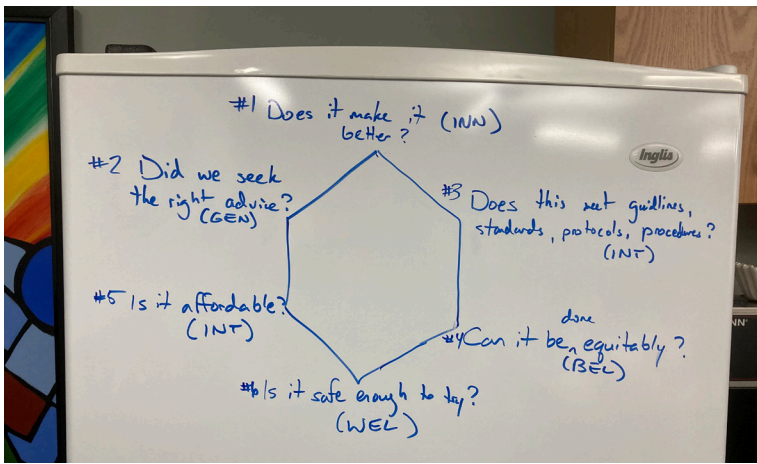 #1 Does it make it (INN)
better?
#2 Did we seek
the right advice?
(GEN)
Inglis
#3 Does this meet guidlines,
standards, protocols, procedures?
(INT)
#5 Is it affordable?
(INT)
#4 Can it be done equitably?
(BEL)
#6 Is it safe enough to try?
(WEL)